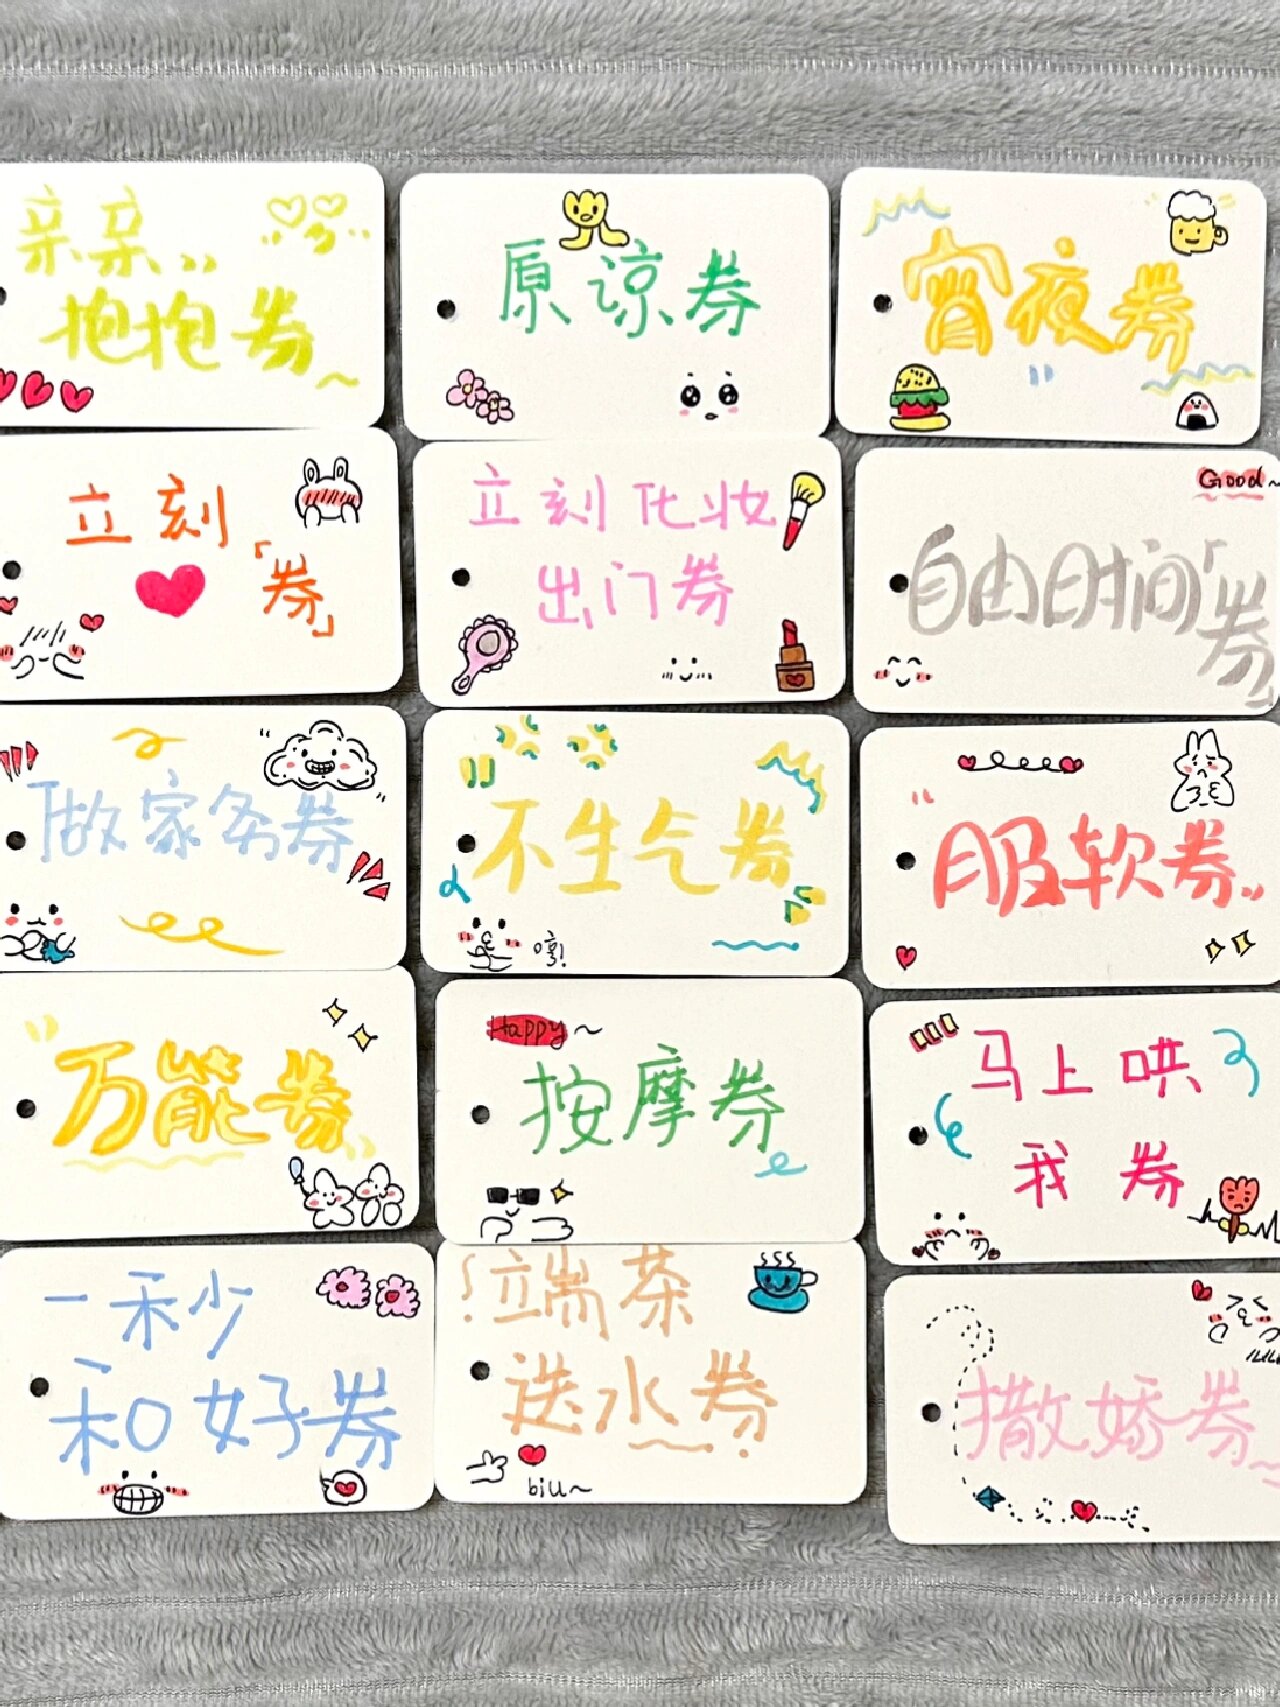 亲亲
抱抱券~
原谅券
宵夜券
立刻
「券」
立刻化妆
出门券
Good~
自由时间「券」
做家务券
不生气券
哼!
服软券
万能券
Happy~
按摩券
马上哄
我券
一秒
和好券
端茶
送水券
biu~
撒娇券~